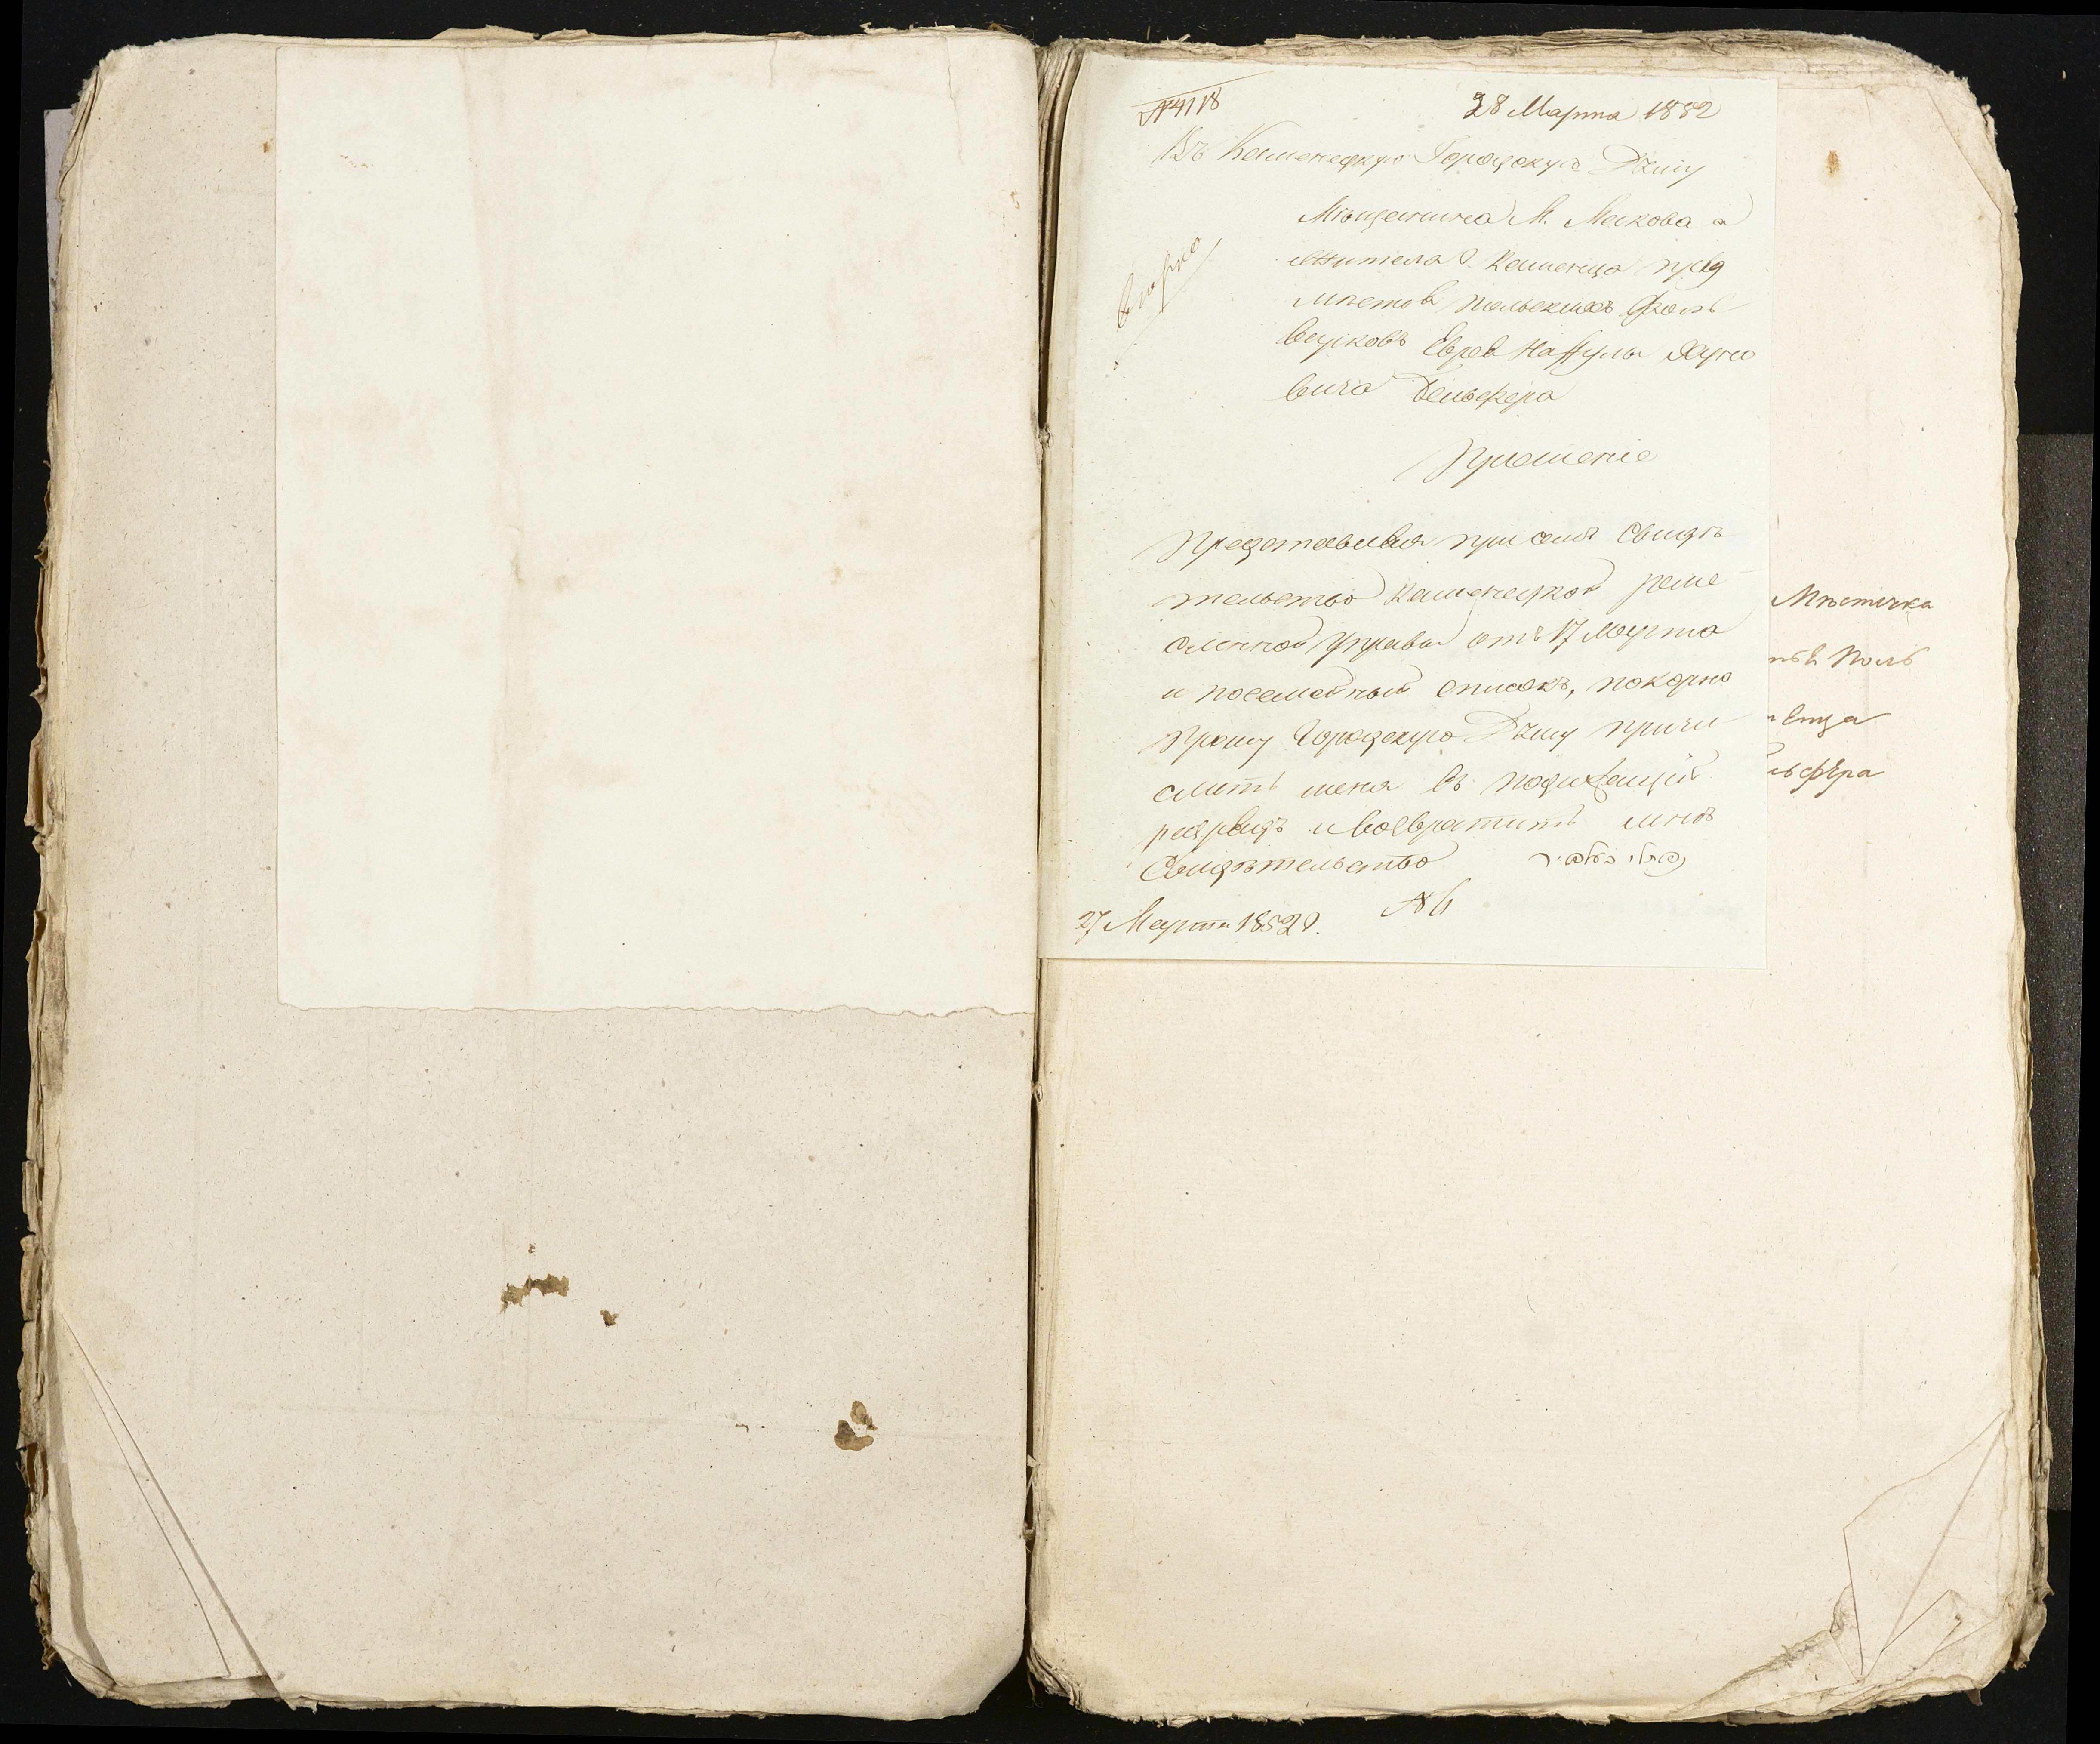 № 4118
28 Марта 1852
Въ Каменецкую Городскую Думу
Мѣщанина М. Макова а
жителя г. Каменца пред
мѣстья польскихъ Фоль
варковъ Еврея
вича Гельфера
Прошеніе
Представляя при семъ Свидѣ
тельство Каменецкой реме
сленной управы отъ 17 Марта
и посемейный списокъ, покорно
прошу Городскую Думу причи
слить меня въ подлежащій
разрядъ и возвратить мнѣ
Свидѣтельство
27 Марта 1852 г.
№ 6
Мѣстечка
Поль
енца
льфера